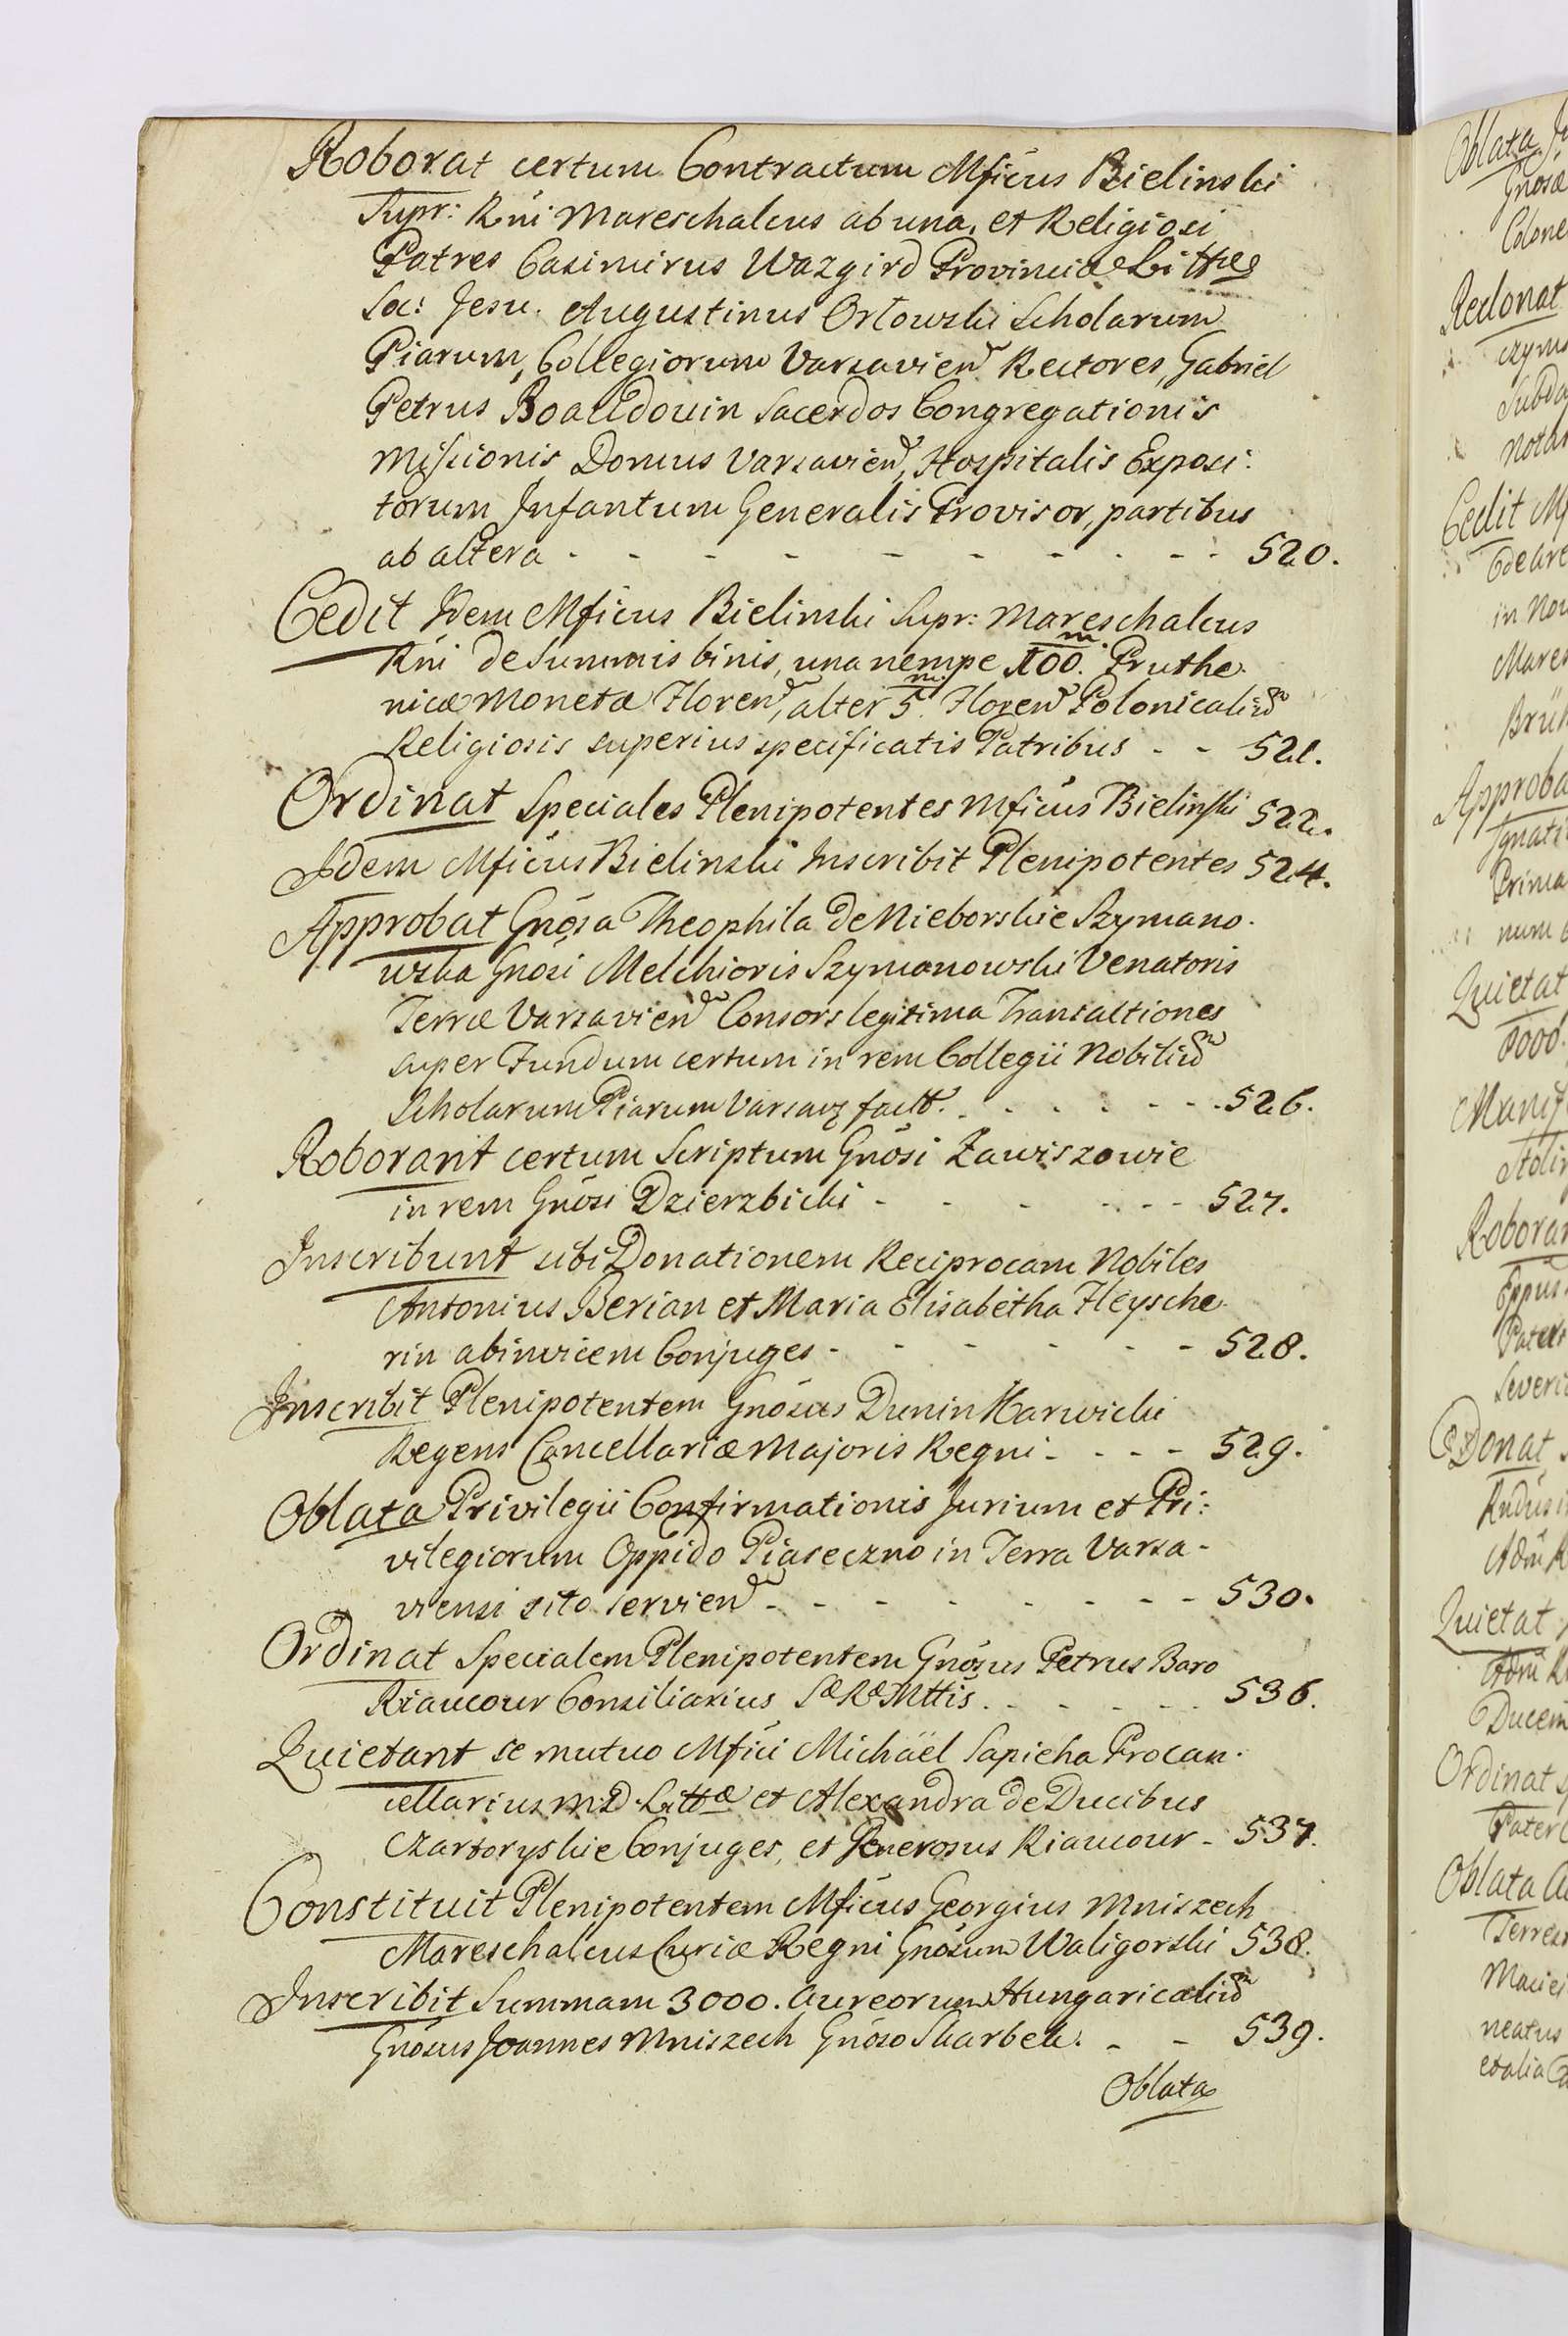 Roborat certum Contractum Mficus Bielinski
Supr: Rni Mareschalcus ab una, et Religiosi
Patres Casimirus Wazgird Provinciæ Littæ
Soc: Jesu. Augustinus Orłowski Scholarum
Piarum, Collegiorum Varsavien Rectores, Gabriel
Petrus Boaudouin Sacerdos Congregationis
Missionis Domus Varsavien, Hospitalis Exposi:
torum Infantum Generalis Provisor, partibus
ab altera - - - - - - - - - 520.
Cedit Idem Mficus Bielinski Supr: Mareschalcus
Rni de Summis binis, una nempe 100.m Pruthe-
nicæ Moneta Floren, alter 5.m Floren Polonicaliu
Religiosis superius specificatis Patribus - - 521.
Ordinat Speciales Plenipotentes Mficus Bielinski 522.
Idem Mficus Bielinski Inscribit Plenipotentes 524.
Approbat Gnosa Theophila de Nieborskie Szymano-
wska Gnosi Melchioris Szymanowski Venatoris
Terræ Varsavien Consors legitima Transactiones
super Fundum certum in rem Collegii Nobiliu
Scholarum Piarum Varsav factt. - - - - - - 526.
Roborant certum Scriptum Gnosi Zawiszowie
in rem Gnosi Dzierzbicki - - - - - - 527.
Inscribunt sibi Donationem Reciprocam Nobiles
Antonius Berian et Maria Elisabetha Fleysche-
rin abinvicem Conjuges - - - - - - 528.
Inscribit Plenipotentem Gnosus Dunin Karwicki
Regens Cancellariæ Majoris Regni - - - - 529.
Oblata Privilegii Confirmationis Jurium et Pri:
vilegiorum Oppido Piaseczno in Terra Varsa-
viensi sito servien - - - - - - - - 530.
Ordinat Specialem Plenipotentem Gnosus Petrus Baro
Riaucour Consiliarius Sæ Ræ Mttis. - - - - - 536.
Quietant se mutuo Mfici Michäel Sapieha Procan-
cellarius M.D. Littæ et Alexandra de Ducibus
Czartoryskie Conjuges, et Generosus Riaucour - 537.
Constituit Plenipotentem Mficus Georgius Mniszech
Mareschalcus Curiæ Regni Gnosum Waligorski 538.
Inscribit Summam 3000. Aureorum Hungaricaliu
Gnosus Joannes Mniszech Gnoso Skarbek. - - 539.
Oblata
Oblata
Gnosæ
Colone
Redonat
czyms
Subda
Notar
Cedit Mf
in Nov
Mares
Brüh
Approba
Ignati
Prima
num
Quietat
8000.
Manif
Roborar
Pater
Severi
Donat
Quietat
Ducem
Ordinat
Pater
Oblata
Terres
Maciei
neatus
et alia